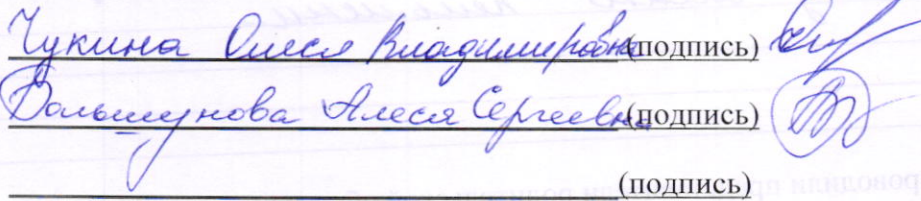 Чукина Олеся Владимировна (подпись)
Большунова Алеся Сергеевна (подпись)
(подпись)